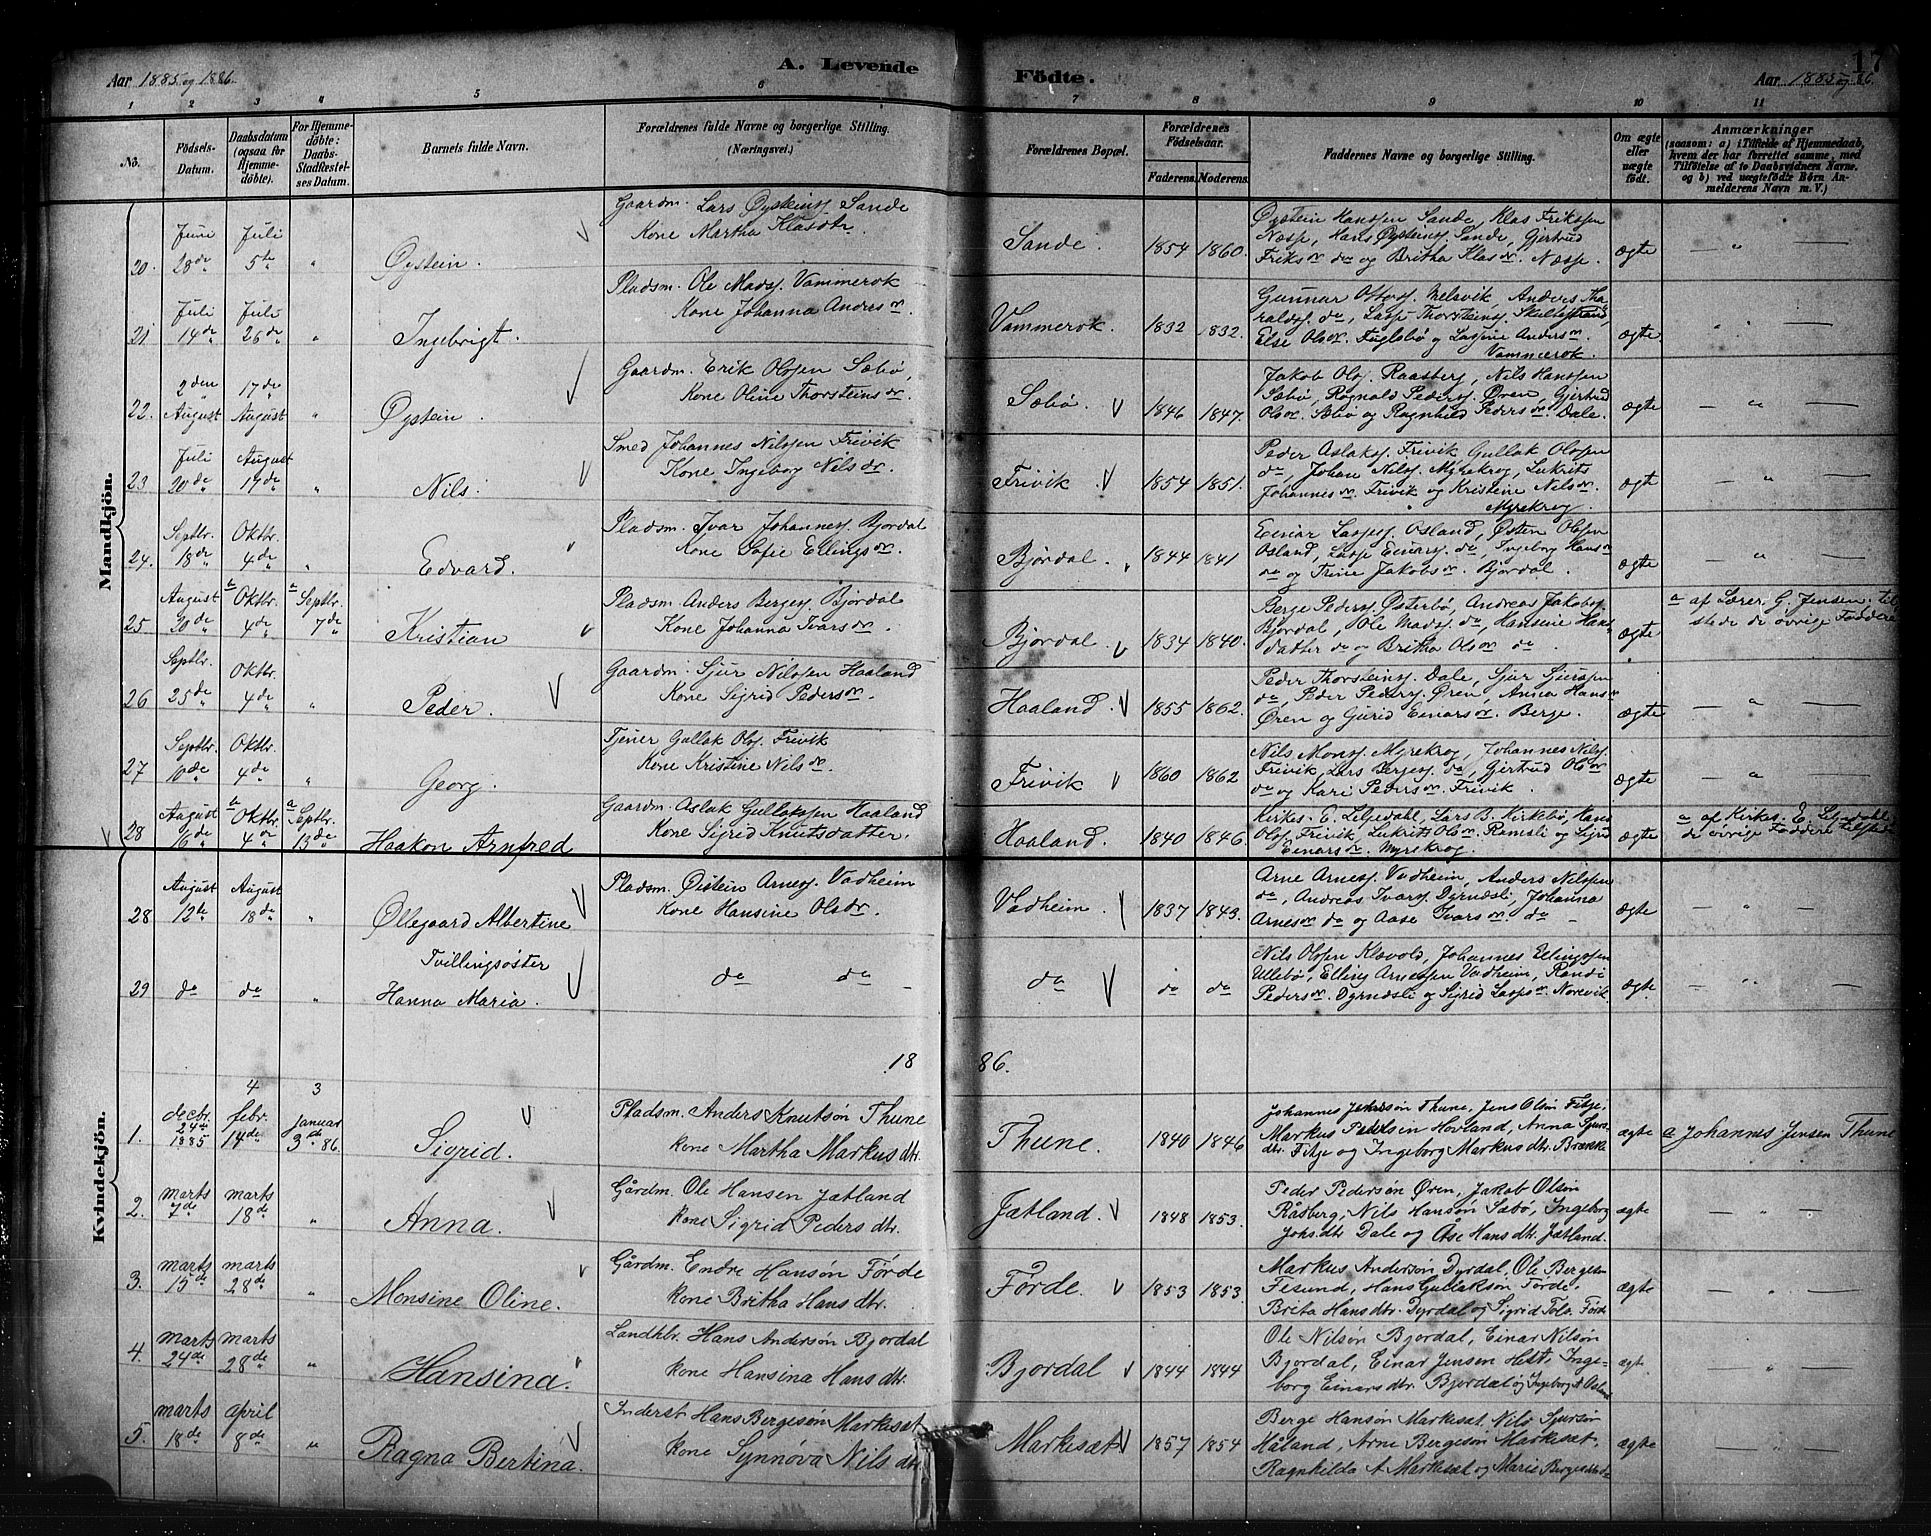 17
Aar 1885 og 1886. A. Levende Födte. Aar 1885 og 86.
1 2 3 4 5 6 7 8 9 10 11
No. Födsels-Datum. Daabsdatum (ogsaa for Hjemmedöbte). For Hjemmedöbte: Daabs-Stadfæstelses Datum. Barnets fulde Navn. Forældrenes fulde Navne og borgerlige Stilling. (Næringsvei.) Forældrenes Bopæl. Forældrenes Födselsaar. Faderens. Moderens. Faddernes Navne og borgerlige Stilling. Om ægte eller uægte födt. Anmærkninger (saasom: a) i Tilfælde af Hjemmedaab, hvem der har forrettet samme, med Tilföielse af to Daabsvidners Navne. og b) ved uægtefödte Börn Anmelderens Navn m. V.)
Mandkjön.
20. Juni 28de Juli 5te " Øystein. Gaardm. Lars Øysteinsj. Sande
Kone Martha Klasdtr. Sande. 1854 1860. Øystein Hanssen Sande, Klas Erikssen
Næsse, Hans Øysteinsj. Sande, Gjertrud
Eriksdr. do og Britha Klasdr. Næsse. ægte — " —
21 Juli 14de Juli 26de " Ingebrigt. Pladsm. Ole Madsj. Vammerok
Kone Johanna Andersdr Vammerok. 1832 1832. Gunnar Olsvsj. Melsvik, Anders Tharaldsj. do, Lasse Thorsteinsj.
Else Olsdr. Fuglsbø og Lassine Andersdr.
Vammerok. ægte " " —
22. 2den August 17de August " Øystein. Gaardm. Erik Olssen Sæbø,
Kone Oline Thorsteinsdr. Sæbø. 1846 1847. Jakob Olsj. Raasberg, Nils Hanssen
Sæbø, Ragnald Pedersj. Øren, Gjertrud
Olsdr. Sæbø og Ragnhild Pedersdr. Dale. ægte — " —
23 Juli 20de August 17de " Nils. Smed Johannes Nilssen Frivik
Kone Ingeborg Nilsdr. Frivik 1854 1851. Peder Aslaksj. Frivik Gullak Olssen
do, Johan Nilsj. Myrekrog, Lukrits
Johannesdr. Frivik og Kristine Nilsdr.
Myrekrog. ægte — " —
24. Septbr. 18de Oktbr. 4de " Edvard. Pladsm. Ivar Johannesj. Bjordal
Kone Sofie Ellingsdr. Bjørdal 1844 1841 Einar Lassesj. Osland, Østen Olssen
Osland, Lasse Einarsj. do, Ingeborg Hansdr
do og Trine Jakobsdr. Bjordal. ægte " —
25 August 20de a Oktbr. 4de a Septbr. 7de Kristian Pladsm. Anders Bergesj. Bjordal
Kone Johanna Ivarsdr. Bjørdal 1834 1840. Berge Pedersj. Østerbø, Andreas Jakobsj.
Bjordal, Ole Madsj. do, Hansine Hansdatter do og Britha Olsdr do. ægte a af Lærer G. Jensen. tilstede de øvrige Faddere
26 Septbr. 25de Oktbr. 4de " Peder. Gaardm. Sjur Nilssen Haaland
Kone Sigrid Pedersdr. Haaland. 1855 1862. Peder Thorsteinsj. Dale, Sjur Sjurssen
do, Peder Pedersj. Øren, Anna Hansdr
Øren og Gjurid Einarsdr. Berge. ægte — " —
27 Septbr. 10de Oktbr. 4de " Georg. Tjener Gullak Olsj. Frivik
Kone Kristine Nilsdr. Frivik 1860 1862 Nils Monsj. Myrekrog, Johannes Nilsj.
Frivik, Lars Bergesj. do, Gjertrud Olsdr
do og Kari Pedersdr. Frivik. ægte — " —
28 August 16de a Oktbr. 4de a Septbr. 13de Haakon Arnfred Gaardm. Aslak Gullakssen Haaland
Kone Sigrid Knutsdatter. Haaland. 1840 1846. Kirkes. E. Leljedahl, Lars B. Kirkebø, Hans
Olsj. Frivik, Lukrits Olsdr. Ramsli og Sigrid
Einarsdr. Myrekrog. ægte a af Kirkes. E. Leljedahl.
de øvrige Faddere tilstede
Kvindekjön.
28 August 12te August 18de " Øllegaard Albertine Pladsm. Øistein Arnesj. Vadheim
Kone Hansine Olsdr. Vadheim. 1837 1843. Arne Arnesj. Vadheim, Anders Nilssen
do, Andreas Ivarsj. Dyrndsli, Johanna
Arnesdr do og Aase Ivarsdr. do — ægte — " —
29 do do " Tvillingsøster
Hanna Maria. do do do do do Nils Olssen Klævold, Johannes Ellingssen
Ullebø, Elling Arnessen Vadheim, Randi
Pedersdr. Dyrndsli og Sigrid Lassesdr. Norevik. ægte — " —
1886.
4 3
1. decbr. 24de 1885 febr. 14de Januar 3de 86. Sigrid. Pladsm. Anders Knutsøn Thune
kone Martha Markusdtr. Thune. 1840 1846 Johannes Jensøn Thune, Jens Olsøn Fitje,
Markus Pedersen Hovland, Anna Jensdtr. Fitje og Ingeborg Markusdtr. Brække ægte a Johannes Jensen Thune
2. marts 7de marts 18de " Anna. Gårdm. Ole Hansen Jætland
kone Sigrid Pedersdtr. Jætland. 1848 1853. Peder Pedersøn Øren, Jakob Olsøn
Råsberg, Nils Hansøn Sæbø, Ingeborg
Johs.dtr Dale og Åse Hansdtr. Jætland. ægte — " —
3. marts 15de marts 28de " Monsine Oline. Gårdm. Endre Hansøn Førde
kone Britha Hansdtr. Førde. 1853 1853. Markus Andersøn Dyrdal, Ole Bergesøn
Fesund, Hans Gullaksøn Førde,
Brita Hansdtr. Dyrdal og Sigrid Førde ægte — " —
4. marts 24de marts 28de " Hansina. Landhbr. Hans Andersøn Bjordal
kone Hansina Hansdtr. Bjordal 1844 1844 Ole Nilsøn Bjordal, Einar Nilsøn
Bjordal, Einar Jensen Hest, Ingeborg Einarsdtr. Bjordal og Ingeborg A Osland ægte " —
5. marts 18de april 8de " Ragna Bertina. Inderst Hans Bergesøn Markesæt
kone Synnøva Nilsdtr. Markesæt 1857 1854 Berge Hansøn Markesæt. Nils Sjursøn
Håland, Arne Bergesøn Markesæt,
Ragnhilda A Markesæt og Marie Bergesdtr do ægte " —